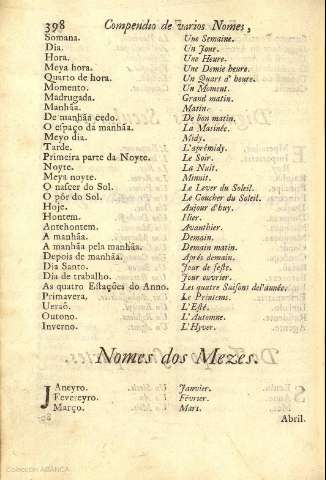 398 Compendio de varios Nomes,
Somana. Une Semaine.
Dia. Un Jour.
Hora. Une Heure.
Meya hora. Une Demie heure.
Quarto de hora. Un Quart d'heure.
Momento. Un Moment.
Madrugada. Grand matin.
Manhãa. Matin.
De manhãa cedo. De bon matin.
O eſpaço da manhãa. La Matinée.
Meyo dia. Midy.
Tarde. L'aprémidy.
Primeira parte da Noyte. Le Soir.
Noyte. La Nuit.
Meya noyte. Minuit.
O naſcer do Sol. Le Lever du Soleil.
O pôr do Sol. Le Coucher du Soleil.
Hoje. Aujour d'huy.
Hontem. Hier.
Antehontem. Avanthier.
A manhãa. Demain.
A manhãa pela manhãa. Demain matin.
Depois de manhãa. Aprés demain.
Dia Santo. Jour de feſte.
Dia de trabalho. Jour ouvrier.
As quatro Eſtações do Anno. Les quatre Saiſons de l'année.
Primavera. Le Printems.
Ueraõ. L'Eſté.
Outono. L'Automne.
Inverno. L'Hyver.
Nomes dos Mezes.
JAneyro. Janvier.
Fevereyro. Février.
Março. Mars.
Abril.
Colección ABANCA